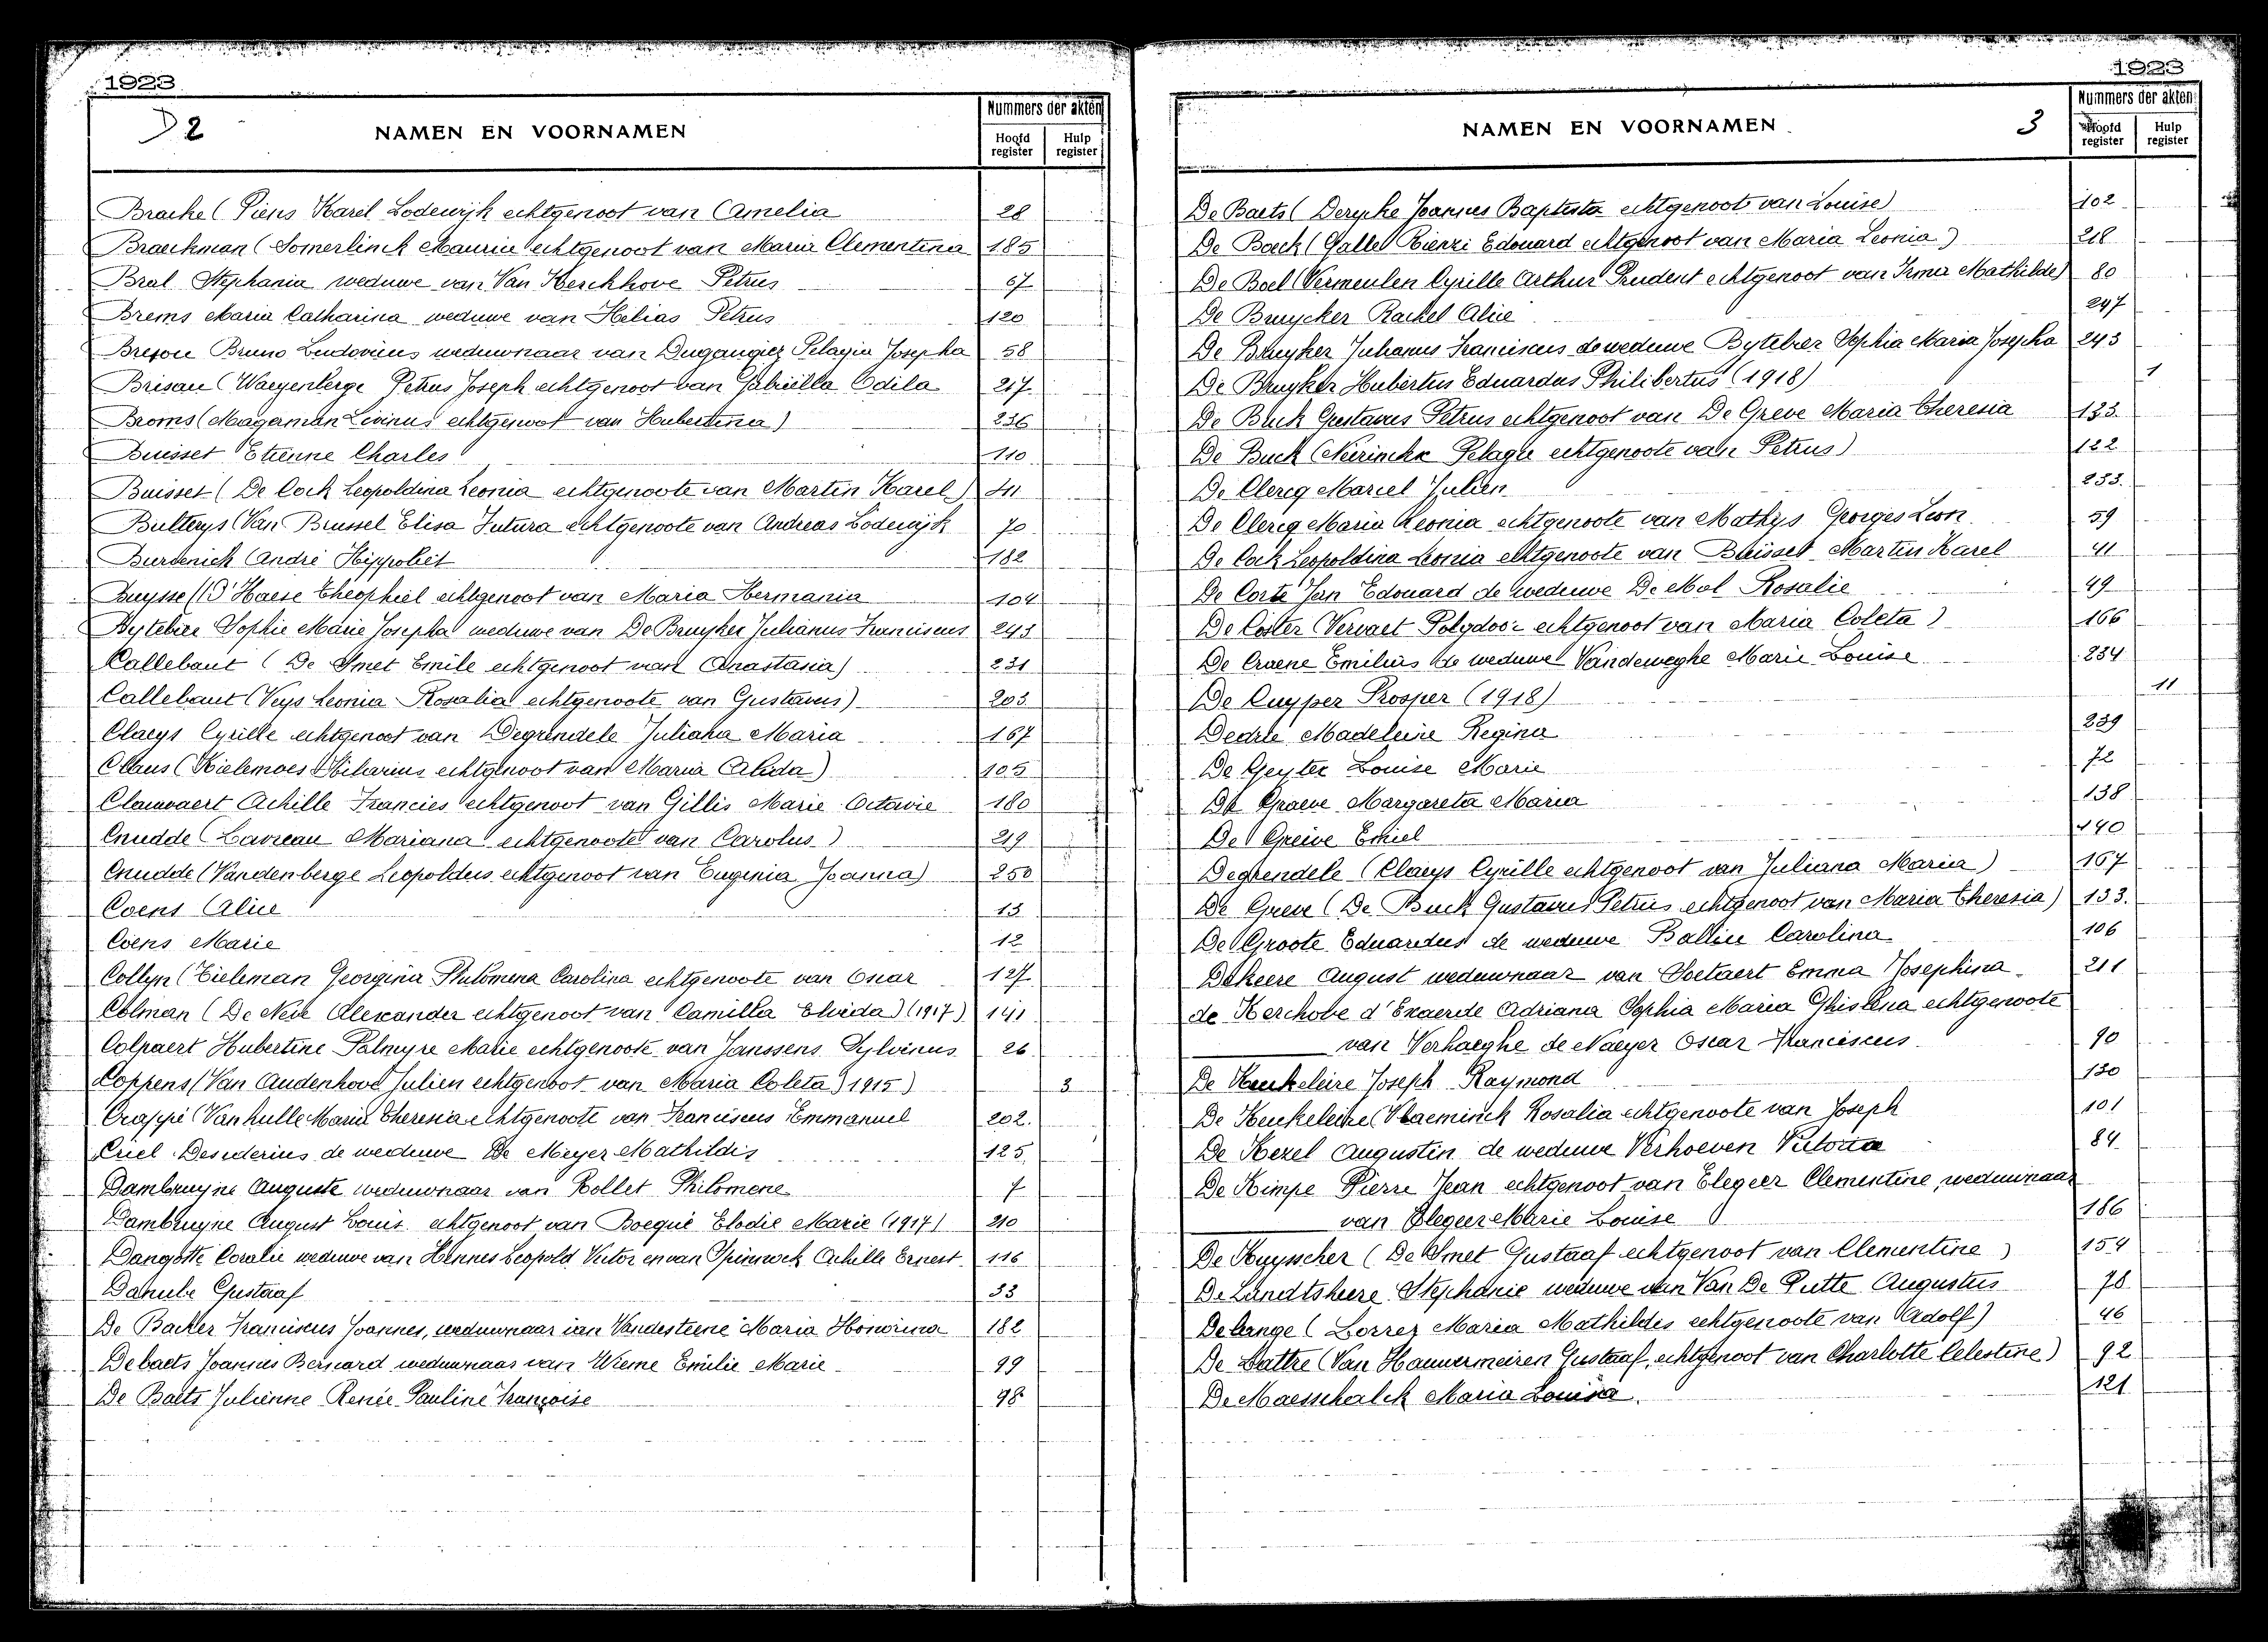 1923
D 2
NAMEN EN VOORNAMEN
Nummers der akten
Hoofd register
Hulp register
Bracke (Piens Karel Lodewijk echtgenoot van Amelia 28
Braeckman (Somerlinck Maurice echtgenoot van Maria Clementina 185
Bral Stephania weduwe van Van Kerckhove Petrus 67
Brems Maria Catharina weduwe van Helias Petrus 120
Bruno Ludovicus weduwnaar van Pelagia Josepha 58
Brisau (Waeyenberge Petrus Joseph echtgenoot van Gabriella Odila 217
Broms (Magaman Livinus echtgenoot van Hubertina) 236
Buisset Etienne Charles 110
Buisset (De Cock Leopoldina Leonia echtgenoote van Martin Karel) 41
Bulterys (Van Brussel Elisa Futura echtgenoote van Andreas Lodewijk 70
Burdenick André Hippoliet 182
Buysse (D'Haese Theophiel echtgenoot van Maria Hermania 104
Bytebier Sophie Marie Josepha weduwe van De Bruyker Julianus Franciscus 243
Callebaut (De Smet Emile echtgenoot van Anastasia) 231
Callebaut (Veys Leonia Rosalia echtgenoote van Gustavus) 203
Claeys Cyrille echtgenoot van Degrendele Juliana Maria 167
Claus (Kielemoes Hilarius echtgenoot van Maria Alida) 105
Clauwaert Achille Francies echtgenoot van Gillis Marie Octavie 180
Cnudde (Lavreau Mariana echtgenoote van Carolus) 219
Cnudde (Vandenberge Leopoldus echtgenoot van Eugenia Joanna) 250
Coens Alice 13
Coens Marie 12
Collyn (Tieleman Georgina Philomena Carolina echtgenoote van Oscar 127
Colman (De Neve Alexander echtgenoot van Camilla Elvida) (1917) 141
Colpaert Hubertine Palmyre Marie echtgenoote van Janssens Sylvinus 26
Coppens (Van Oudenhove Julien echtgenoot van Maria Coleta) (1915) 3
Crappé (Vanhulle Maria Theresia echtgenoote van Franciscus Emmanuel 202.
Criel Desiderius de weduwe De Meyer Mathildis 125
Dambruyne Auguste weduwnaar van Rollet Philomene 7
Dambruyne August Louis echtgenoot van Boequé Elodie Marie (1917) 210
Dangotte Coralie weduwe van Hennes Leopold Victor en van Spinnock Achille Ernest 116
Danube Gustaaf 33
De Backer Franciscus Joannes, weduwnaar van Vandesteene Maria Honorina 182
Debaets Joannes Bernard weduwnaar van Wieme Emilie Marie 99
De Baets Julienne Renée Pauline Françoise 98
1923
NAMEN EN VOORNAMEN
3
Nummers der akten
Hoofd register
Hulp register
De Baets (Derycke Joannes Baptista echtgenoot van Louise) 102
De Boeck (Galle Rienzi Edouard echtgenoot van Maria Leonia) 218
De Boel (Vermeulen Cyrille Arthur Prudent echtgenoot van Irma Mathilde) 80
De Bruycker Rachel Alice 247
De Bruyker Julianus Franciscus de weduwe Bytebier Sophia Maria Josepha 243
De Bruyker Hubertus Eduardus Philibertus (1918) 1
De Buck Gustavus Petrus echtgenoot van De Greve Maria Theresia 133
De Buck (Neirinckx Pelagie echtgenoote van Petrus) 122
De Clercq Marcel Julien 253.
De Clercq Maria Leonia echtgenoote van Mathys Georges Leon 59
De Cock Leopoldina Leonia echtgenoote van Buisset Martin Karel 41
De Corte Jan Edouard de weduwe De Mol Rosalie 49
De Coster (Vervaet Polydoor echtgenoot van Maria Coleta) 166
De Craene Emilius de weduwe Vandeweghe Marie Louise 234
De Cuyper Prosper (1918) 11
Madeleine Regina 239
De Geyter Louise Marie 72
De Graeve Margareta Maria 138
De Greive Emiel 140
Degrendele (Claeys Cyrille echtgenoot van Juliana Maria) 167
De Greve (De Buck Gustavus Petrus echtgenoot van Maria Theresia) 133.
De Groote Eduardus de weduwe Ballin Carolina 106
Dekeere August weduwnaar van Soetaert Emma Josephina 211
de Kerchove d'Exaerde Adriana Sophia Maria Ghislena echtgenoote
van Verhaeghe de Naeyer Oscar Franciscus 90
De Keukeleire Joseph Raymond 130
De Keukeleire (Vlaeminck Rosalia echtgenoote van Joseph 101
De Kezel Augustin de weduwe Verhoeven Victoria 84
De Kimpe Pierre Jean echtgenoot van Elegeer Clementine, weduwnaar
van Elegeer Marie Louise 186
De Kuysscher (De Smet Gustaaf echtgenoot van Clementine) 154
De Landtsheere Stephanie weduwe van Van De Putte Augustus 78
Delange (Lorrez Maria Mathildes echtgenoote van Adolf) 46
De Lattre (Van Hauwermeiren Gustaaf, echtgenoot van Charlotte Celestine) 92
De Maesschalck Maria Louisa. 121